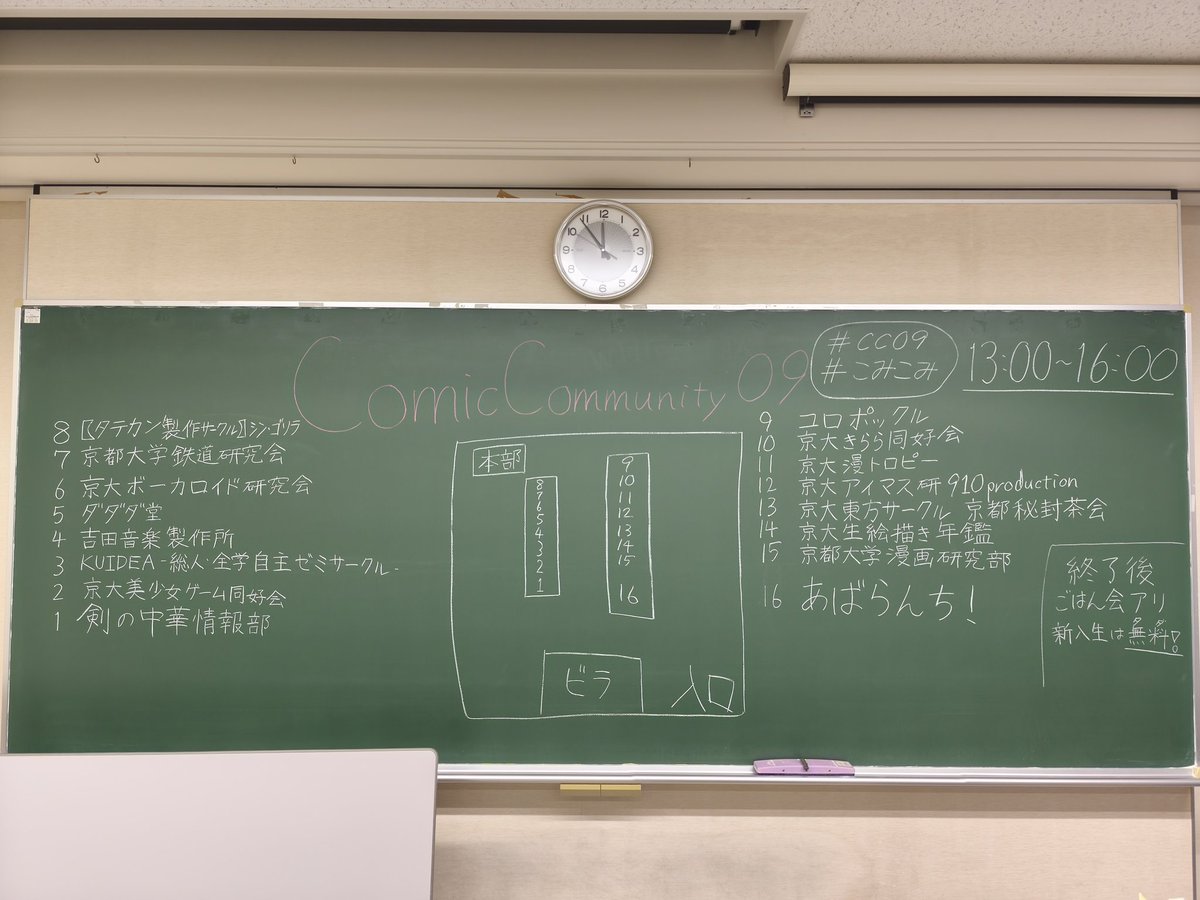 Comic Community 09
#CC09
#こみこみ
13:00~16:00
8 〖タテカン製作サークル〗シン・ゴリラ
7 京都大学鉄道研究会
6 京大ボーカロイド研究会
5 ダダダ堂
4 吉田音楽製作所
3 KUIDEA-総人・全学自主ゼミサークル-
2 京大美少女ゲーム同好会
1 剣の中華情報部
本部
8
7
6
5
4
3
2
1
9
10
11
12
13
14
15
16
ビラ
入口
9 コロポックル
10 京大きらら同好会
11 京大漫トロピー
12 京大アイマス研910production
13 京大東方サークル 京都秘封茶会
14 京大生絵描き年鑑
15 京都大学漫画研究部
16 あばらんち!
終了後
ごはん会アリ
新入生は無料!
12
1
2
3
4
5
6
7
8
9
10
11